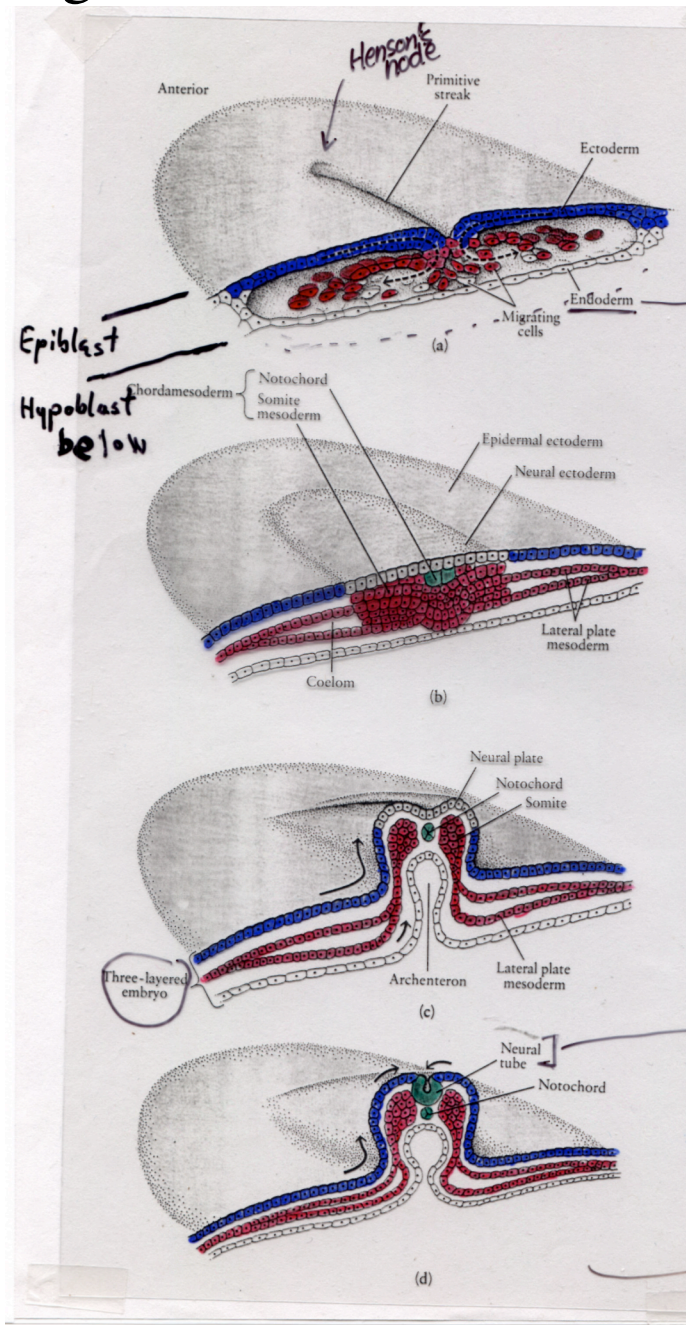 Henson's
node
Anterior
Primitive
streak
Ectoderm
Endoderm
Migrating
cells
(a)
Epiblast
Hypoblast
below
Chordamesoderm
Notochord
Somite
mesoderm
Epidermal ectoderm
Neural ectoderm
Lateral plate
mesoderm
Coelom
(b)
Neural plate
Notochord
Somite
Lateral plate
mesoderm
Archenteron
Three-layered
embryo
(c)
Neural
tube
Notochord
(d)